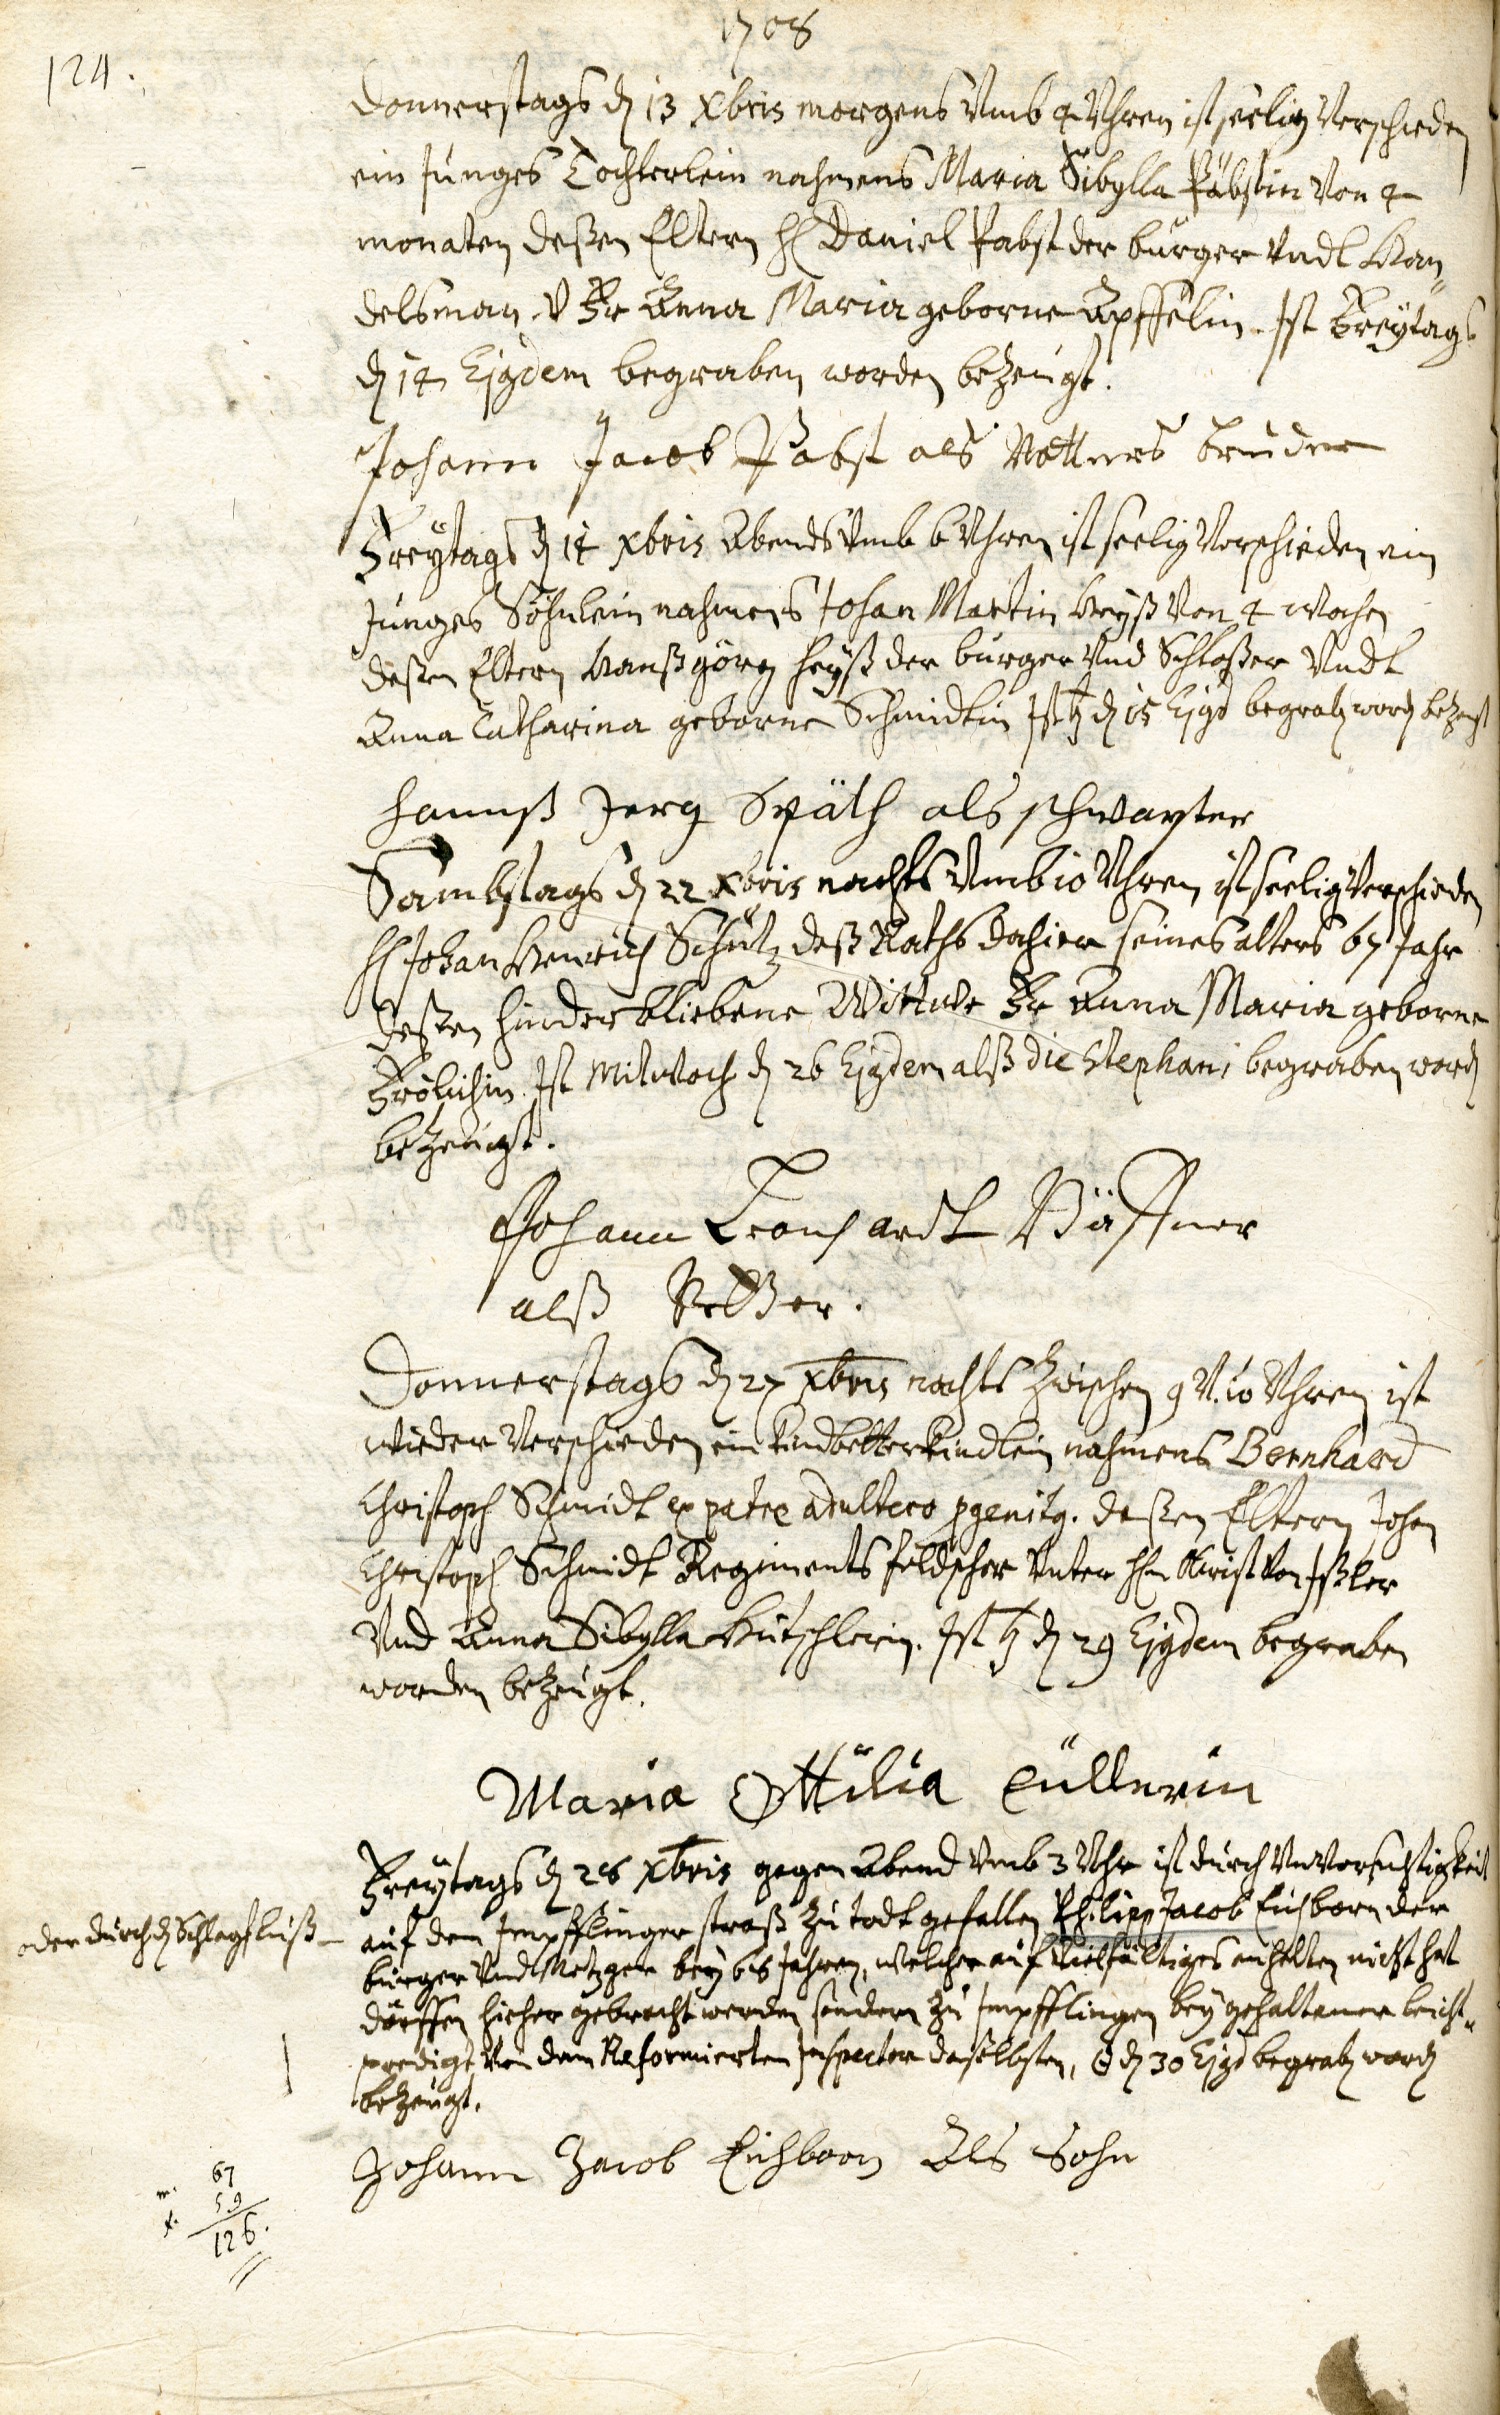 1708
124.
Donnerstags d 13 Xbris morgens Vmb 4 Vhren ist seelig Verschieden
ein Junges Töchterlein nahmens Maria Sibylla Päbstin Von 4
monaten deßen Eltern H Daniel Pabst der burger Vndt Han„
delsman V Fr Anna Maria geborne Apffelin. Ist Freytags
d 14 Ejusdem begraben worden bezeugt.
Johann Jacob Pabst als Vatters bruder
Freytags d 14 Xbris Abends Vmb 6 Vhren ist seelig Verschieden ein
Junges Söhnlein nahmens Johan Martin Heyß Von 4 wochen
deßen Eltern Hanß görg Heyß der burger Vnd Schloßer Vndt
Anna Catharina geborne Schmidtin Ist ♄ d 15 Ejusd begrab word bezeugt
Hannß Jerg Späth als schwayer
Sambstags d 22 Xbris nachts Vmb 10 Vhren ist seelig Verschieden
H Johan Henrich Schütz deß Raths dahier seines alters 67 Jahr
deßen hinderbliebene Wittwe Fr Anna Maria geborne
Frölichin. Ist Mitwoch d 26 Ejusdem alß die Stephani begraben word
bezeugt.
Johann Leonhardt
alß Vetter.
Donnerstags d 27 Xbris nachts Zwischen 9 V. 10 Vhren ist
wieder Verschieden ein Kindbetterkindlein nahmens Bernhard
Christoph Schmidt ex patre adultero progenitus. deßen Eltern Johan
Christoph Schmidt Regiments feldscher Vnter Hn Obrist Von Ißler
Vnd Anna Sibylla Hutschlerin. Ist ♄ d 29 Ejusdem begraben
worden bezeugt.
Maria Ottilia Cüllerin
Freytags d 28 Xbris gegen Abend Vmb 3 Vhr ist durch Vnvorsichtigkeit
oder durch d Schlagfluß
auf dem Impfflinger straß zu todt gefallen Philipp Jacob Eichborn der
burger Vndt Metzger bey 68 Jahren, welcher auf Vielfältiges anhalten nicht hat
dörffen hieher gebracht werden sondern zu Impfflingen bey gehaltener leicht„
predigt Von dem Reformierten Inspector daselbsten, ☉ d 30 Ejusd begrab word
bezeugt.
Johann Jacob Eichborn Als Sohn
m. 67
f. 59
126.